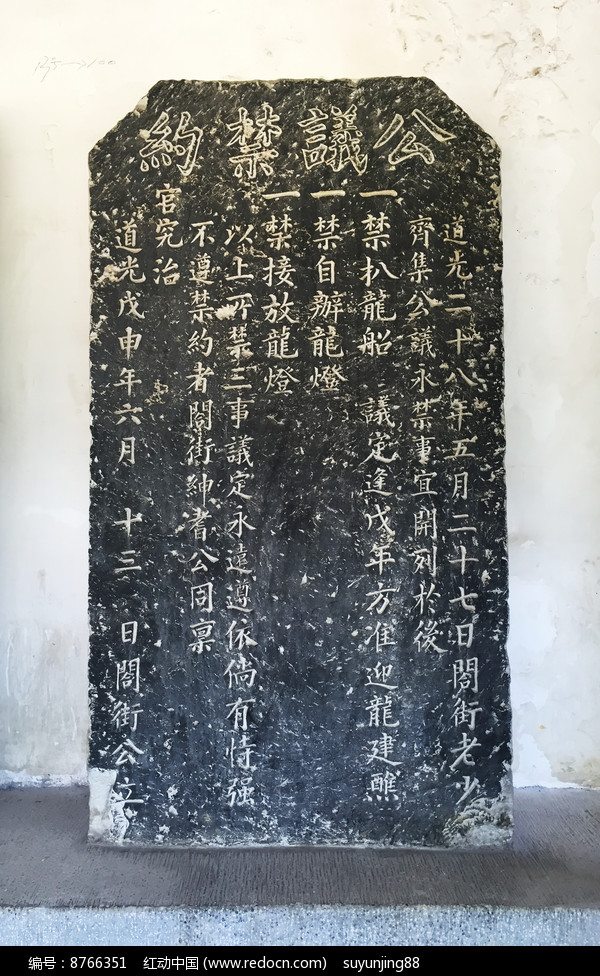 公議禁約
道光二十八年五月二十七日閤街老少
齊集公議永禁事宜開列於後
一禁扒龍船 議定逢戊年方准迎龍建醮
一禁自辦龍燈
一禁接放龍燈
以上所禁三事議定永遠遵依倘有恃强
不遵禁約者閤街紳耆公同稟
官究治
道光戊申年六月 十三 日閤街公立
编号：8766351 红动中国 (www.redocn.com) suyunjing88